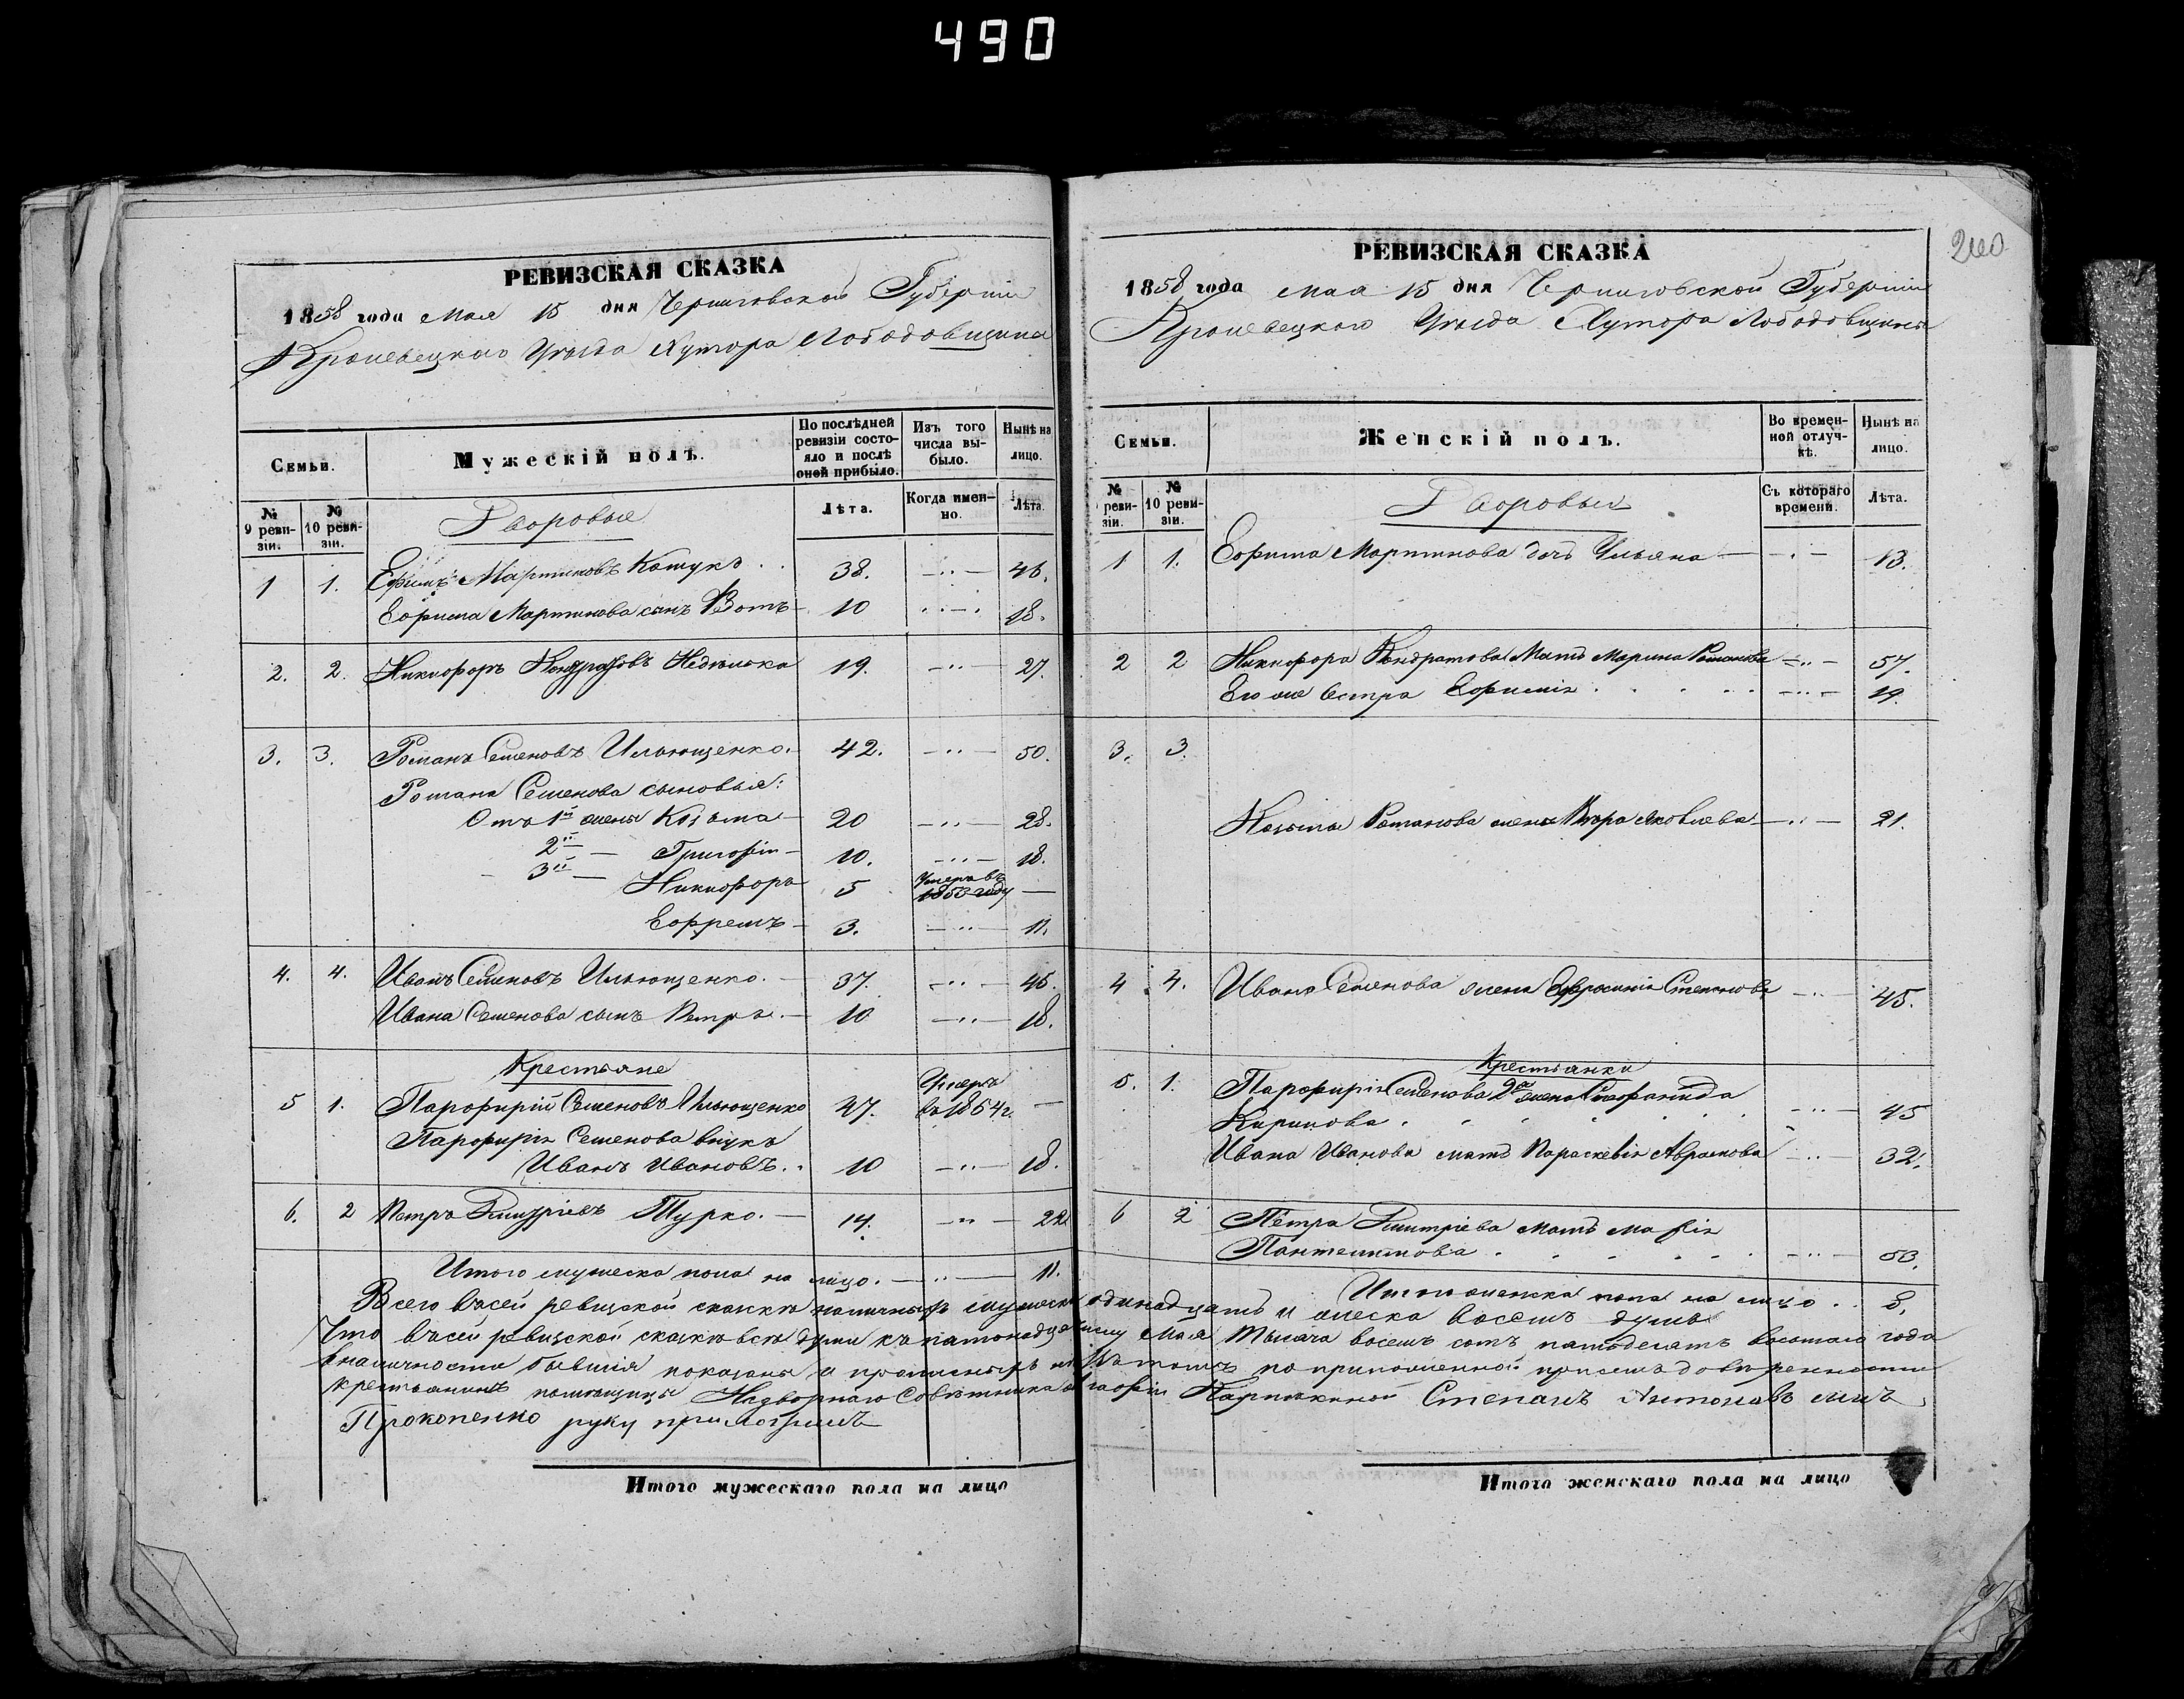 490
РЕВИЗСКАЯ СКАЗКА
1858 года Мая 15 дня Черниговской Губерніи
Кролевецкаго Уѣзда Хутора Лободовщины
Семьи.
Мужескій полъ.
По послѣдней ревизіи состояло и послѣ оной прибыло.
Изъ того числа выбыло.
Нынѣ на лицо.
№ 9 ревизіи.
№ 10 ревизіи.
Дворовые
Лѣта.
Когда именно.
Лѣта.
1 1. Ефимъ Мартиновъ Кошукъ . . 38. 46.
Ефима Мартинова сынъ 10 18.
2. 2. Никифоръ Кондратовъ Недѣлька 19. 27.
3. 3. Романъ Семеновъ Ильющенко. 42. 50.
Романа Семенова сыновья:
Отъ 1й жены Козьма 20 28.
2й — Григорій 10. 18.
3й — Никифоръ 5 Умеръ въ 1850 году —
Ефремъ 3. 11.
4. 4. Иванъ Семеновъ Ильющенко. 37. 45.
Ивана Семенова сынъ Петръ. 10 18.
Крестьяне
5 1. Парфирій Семеновъ Ильющенко 47. Умеръ въ 1854 г. —
Парфирія Семенова внукъ
Иванъ Ивановъ. 10 18.
6. 2 Петръ Дмитріевъ Турко. 14. 22
Итого мужеска пола на лицо. 11.
РЕВИЗСКАЯ СКАЗКА
240
1858 года Мая 15 дня Черниговской Губерніи
Кролевецкаго Уѣзда Хутора Лободовщины
Семьи.
Женскій полъ.
Во временной отлучкѣ.
Нынѣ на лицо.
№ ревизіи.
№ 10 ревизіи.
Дворовыя
Съ котораго времени.
Лѣта.
1 1. Ефима Мартинова дочь Ульяна 13.
2 2 Никифора Кондратова Мать Марина Романова 57.
Его же Сестра Ефимія 19.
3. 3.
Козьмы Романова жена Вѣра Яковлева 21.
4 4. Ивана Семенова жена Ефросинія Степанова 45.
Крестьянки
5. 1. Парфирія Семенова 2я жена Стефанида
Кирилова 45
Ивана Иванова мать Параскевія Абрамова 32.
6 2 Петра Дмитріева Мать Марія
Пантелимонова 53.
Итого женска пола на лицо . . 8.
Всего въ сей ревизской сказкѣ наличныхъ мужеска одинадцать и женска восемь душъ
Что въ сей ревизской сказкѣ всѣ души къ пятонадцатому числу Мая тысяча восемь сотъ пятьдесятъ восьмаго года
въ наличности бывшія показаны и прописныхъ нѣтъ въ томъ по приложенной при семъ довѣренности
крестьянинъ помѣщицы Надворнаго Совѣтника Степанъ Антоновъ сынъ
Прокопенко руку приложилъ
Итого мужескаго пола на лицо
Итого женскаго пола на лицо